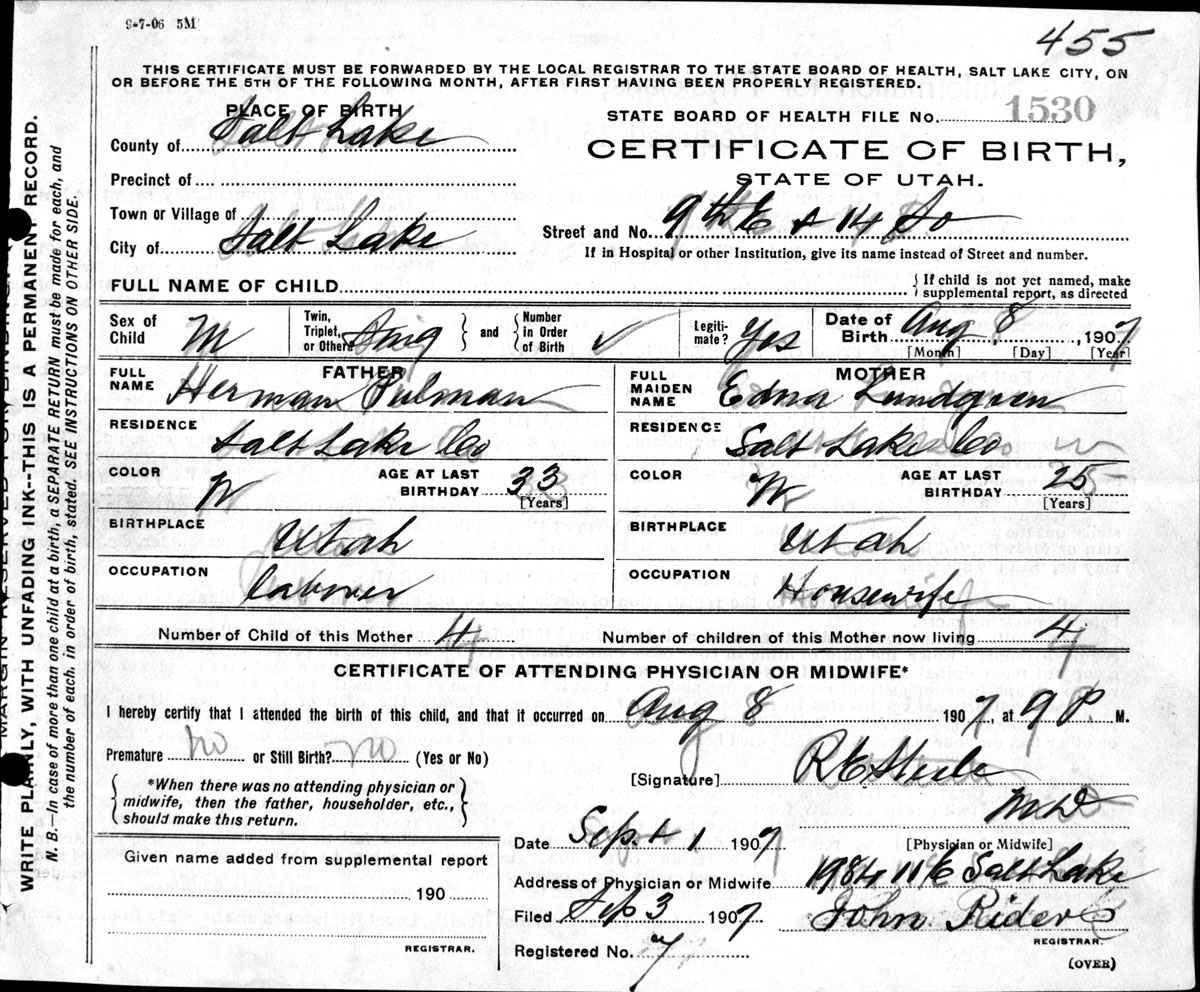 9-7-06 5M
455
THIS CERTIFICATE MUST BE FORWARDED BY THE LOCAL REGISTRAR TO THE STATE BOARD OF HEALTH, SALT LAKE CITY, ON
OR BEFORE THE 5TH OF THE FOLLOWING MONTH, AFTER FIRST HAVING BEEN PROPERLY REGISTERED.
PLACE OF BIRTH
STATE BOARD OF HEALTH FILE NO. 1530
County of Salt Lake
CERTIFICATE OF BIRTH,
STATE OF UTAH.
Precinct of
Town or Village of
Street and No. 9th E & 14 So
City of Salt Lake
If in Hospital or other Institution, give its name instead of Street and number.
FULL NAME OF CHILD
{If child is not yet named, make
supplemental report, as directed
Sex of Child M
Twin, Triplet, or Other Sing } and { Number in Order of Birth ✓
Legiti-mate? Yes
Date of Birth Aug 8, 1907
[Month] [Day] [Year]
FATHER
FULL NAME Herman Pulman
MOTHER
FULL MAIDEN NAME Edna Lundgren
RESIDENCE Salt Lake Co
RESIDENCE Salt Lake Co
COLOR W AGE AT LAST BIRTHDAY 33 [Years]
COLOR W AGE AT LAST BIRTHDAY 25 [Years]
BIRTHPLACE Utah
BIRTHPLACE Utah
OCCUPATION Laborer
OCCUPATION Housewife
Number of Child of this Mother 4 Number of children of this Mother now living 4
CERTIFICATE OF ATTENDING PHYSICIAN OR MIDWIFE*
I hereby certify that I attended the birth of this child, and that it occurred on Aug 8 1907, at 9 P. M.
Premature no or Still Birth? no (Yes or No)
{ *When there was no attending physician or
midwife, then the father, householder, etc.,
should make this return. }
[Signature] R E Steele
M D
[Physician or Midwife]
Date Sept 1 1907
Address of Physician or Midwife 1984 11 E Salt Lake
Filed Sep 3 1907 John Rider
REGISTRAR.
Registered No. 7
(OVER)
Given name added from supplemental report
190
REGISTRAR.
WRITE PLAINLY, WITH UNFADING INK--THIS IS A PERMANENT RECORD.
N. B.—In case of more than one child at a birth, a SEPARATE RETURN must be made for each, and
the number of each, in order of birth, stated. SEE INSTRUCTIONS ON OTHER SIDE.